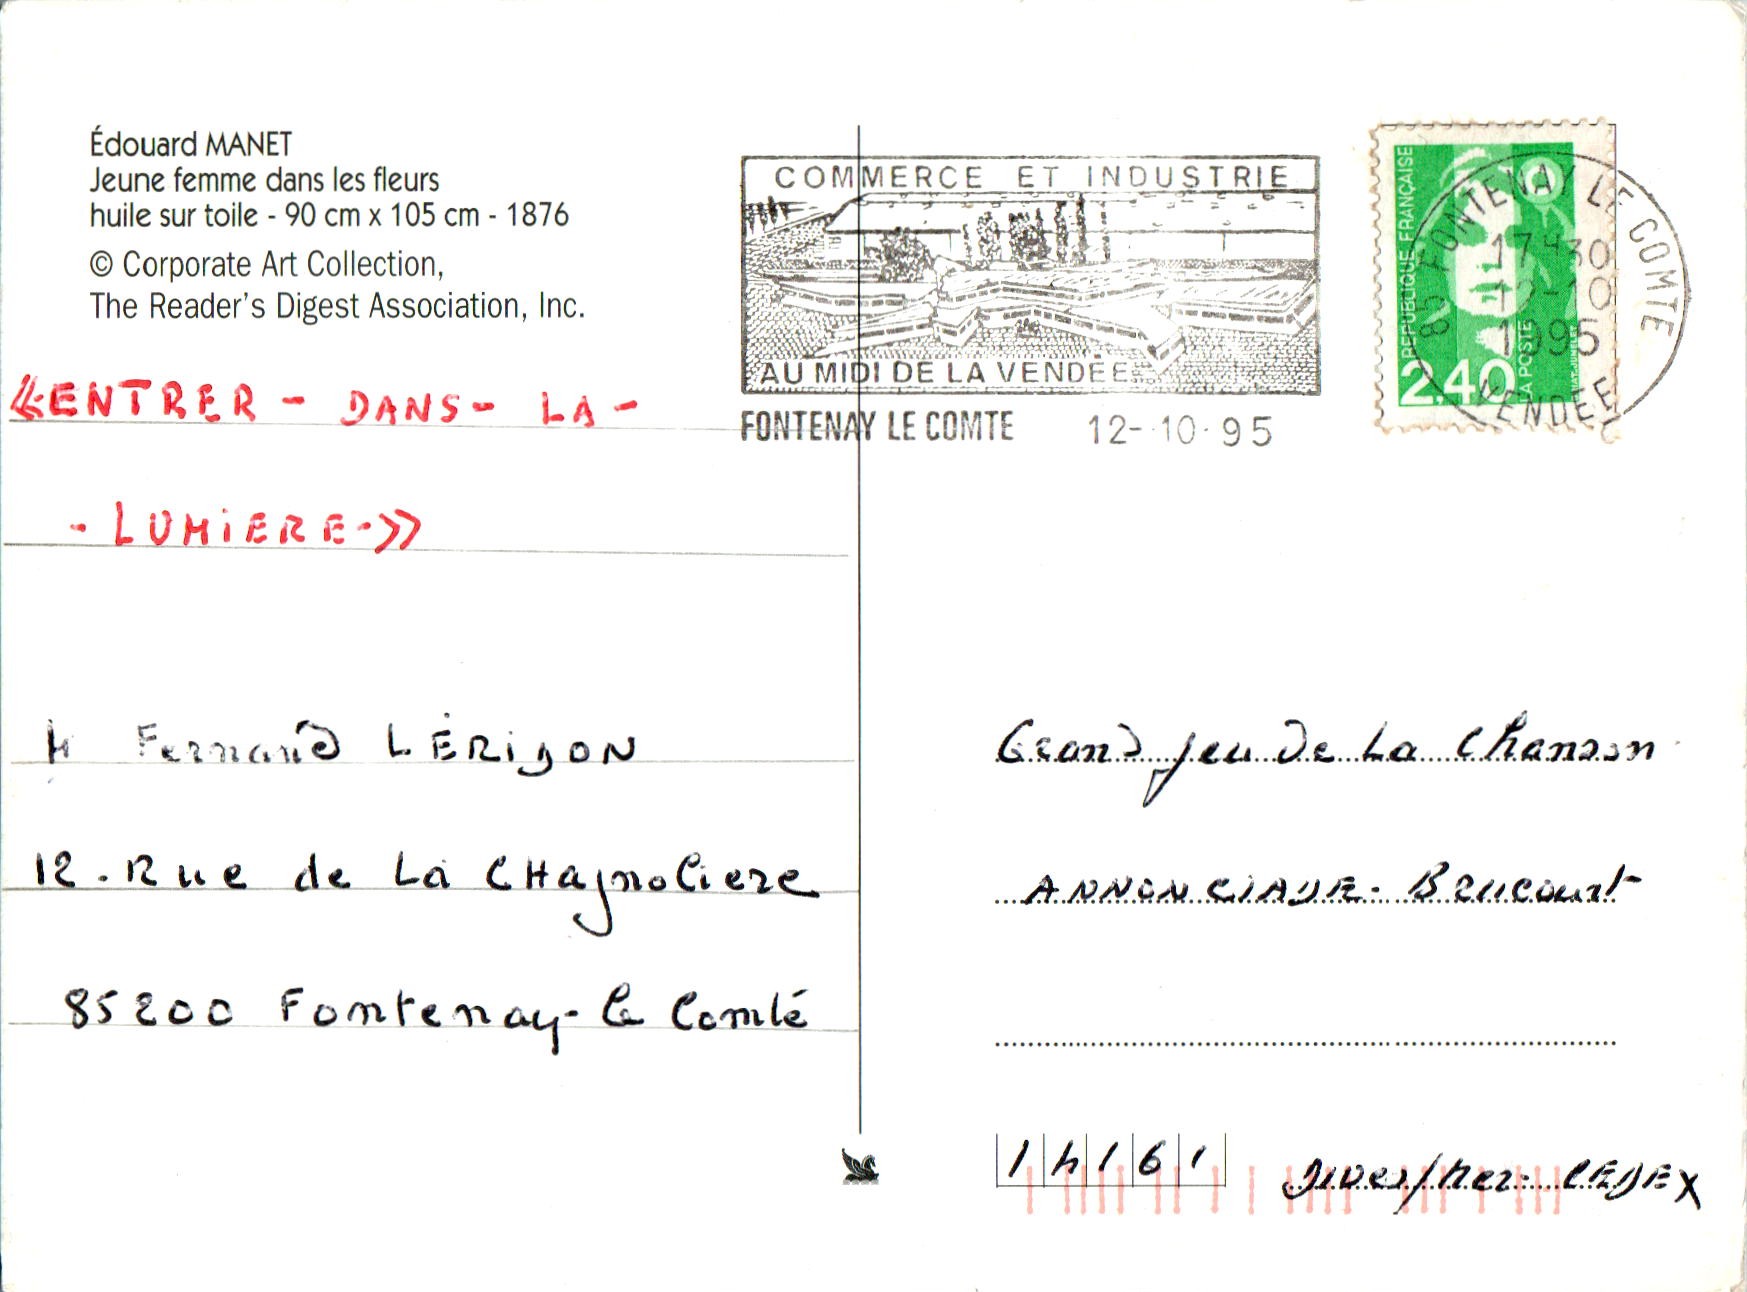 Édouard MANET
Jeune femme dans les fleurs
huile sur toile - 90 cm x 105 cm - 1876
© Corporate Art Collection,
The Reader's Digest Association, Inc.
«ENTRER - DANS - LA -
- LUMIERE -»
M Fernand LÉRiSON
12. Rue de La CHagnoliere
85200 Fontenay-le Comté
COMMERCE ET INDUSTRIE
AU MIDI DE LA VENDÉE
FONTENAY LE COMTE 12-10-95
RÉPUBLIQUE FRANÇAISE
2,40
LA POSTE
85 FONTENAY LE COMTE
17H30
12-10
1995
VENDEE
Grand Jeu De La Chanson
ANNONCIADE - Brucourt
14161 Dives/Mer - CEDEX